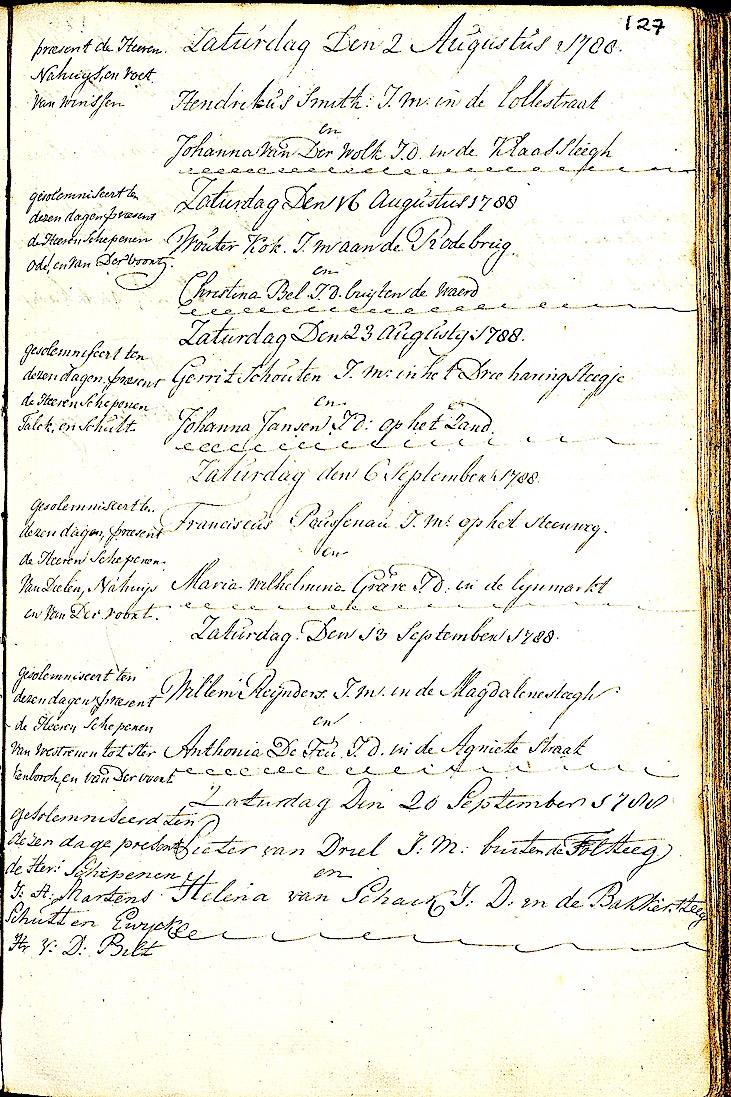 127
præsent de Heeren
Nahuijs, en voet
van winssen
Zaturdag Den 2 Augustus 1788.
Hendrikus Smith: J. m: in de Lollestraat
en
Johanna Van Der Wolk J. d. in de Klaassteegh
gesolemniseert ten
dezen dagen, præsent
de Heeren Schepenen
Ode, en Van Der voort.
Zaturdag Den 16 Augustus 1788
Wouter Kok. J. m aan de Rodebrug.
en
Christina Bel. J. D. buijten de waerd
gesolemniseert ten
dezen dagen, præsent
de Heeren Schepenen
Falck. en Schult.
Zaturdag Den 23 Augusty 1788.
Gerrit Schouten J. m: in het Drie haring Steegje
en
Johanna Jansen. J d: op het Zand.
gesolemniseert te.
dezen dagen, præsent
de Heeren Schepenen.
Van Deelen, Nahuijs
en Van Der voort.
Zaturdag den 6 September 1788.
Franciscus J. m: op het Steenweg.
en
Maria Wilhelmina Gräve J d. in de Lynmarkt
gesolemniseert ten
dezen dagen præsent
de Heeren Schepenen
van westrenen tot Ster
kenborch, en van Der voort
Zaturdag. Den 13 September 1788.
Willem Reijnders. J. m. in de Magdalenesteegh
en
Anthonia De Feu. J. d. in de Agniete Straat
gesolemniseerd ten
dezen dage present
de Her: Schepenen
J: A: Martens
Schutt en Ewyck
Hr V: D: Bilt
Zaturdag Den 20 September 1788
Pieter van Driel J: M: buiten de Tolsteeg
en
Helena van Schaik J: D: in de Bakker steeg